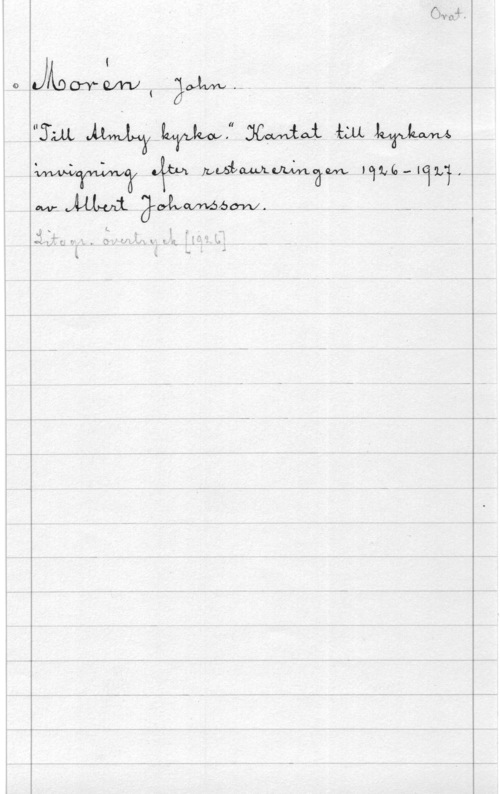 Orat.
Morén, John.
"Till Almby kyrka." Kantat till kyrkans
invigning efter restaureringen 1926-1927.
av Albert Johansson.
Litogr. övertryck [1926]